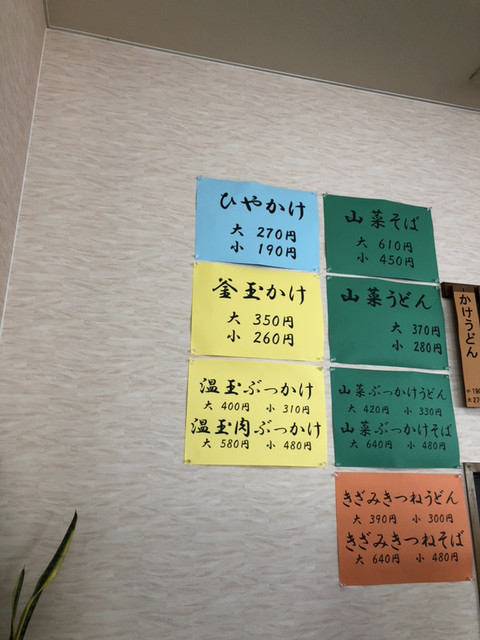 ひやかけ
大 270円
小 190円
釜玉かけ
大 350円
小 260円
温玉ぶっかけ
大 400円 小 310円
温玉肉ぶっかけ
大 580円 小 480円
山菜そば
大 610円
小 450円
山菜うどん
大 370円
小 280円
山菜ぶっかけうどん
大 420円 小 330円
山菜ぶっかけそば
大 640円 小 480円
きざみきつねうどん
大 390円 小 300円
きざみきつねそば
大 640円 小 480円
かけうどん